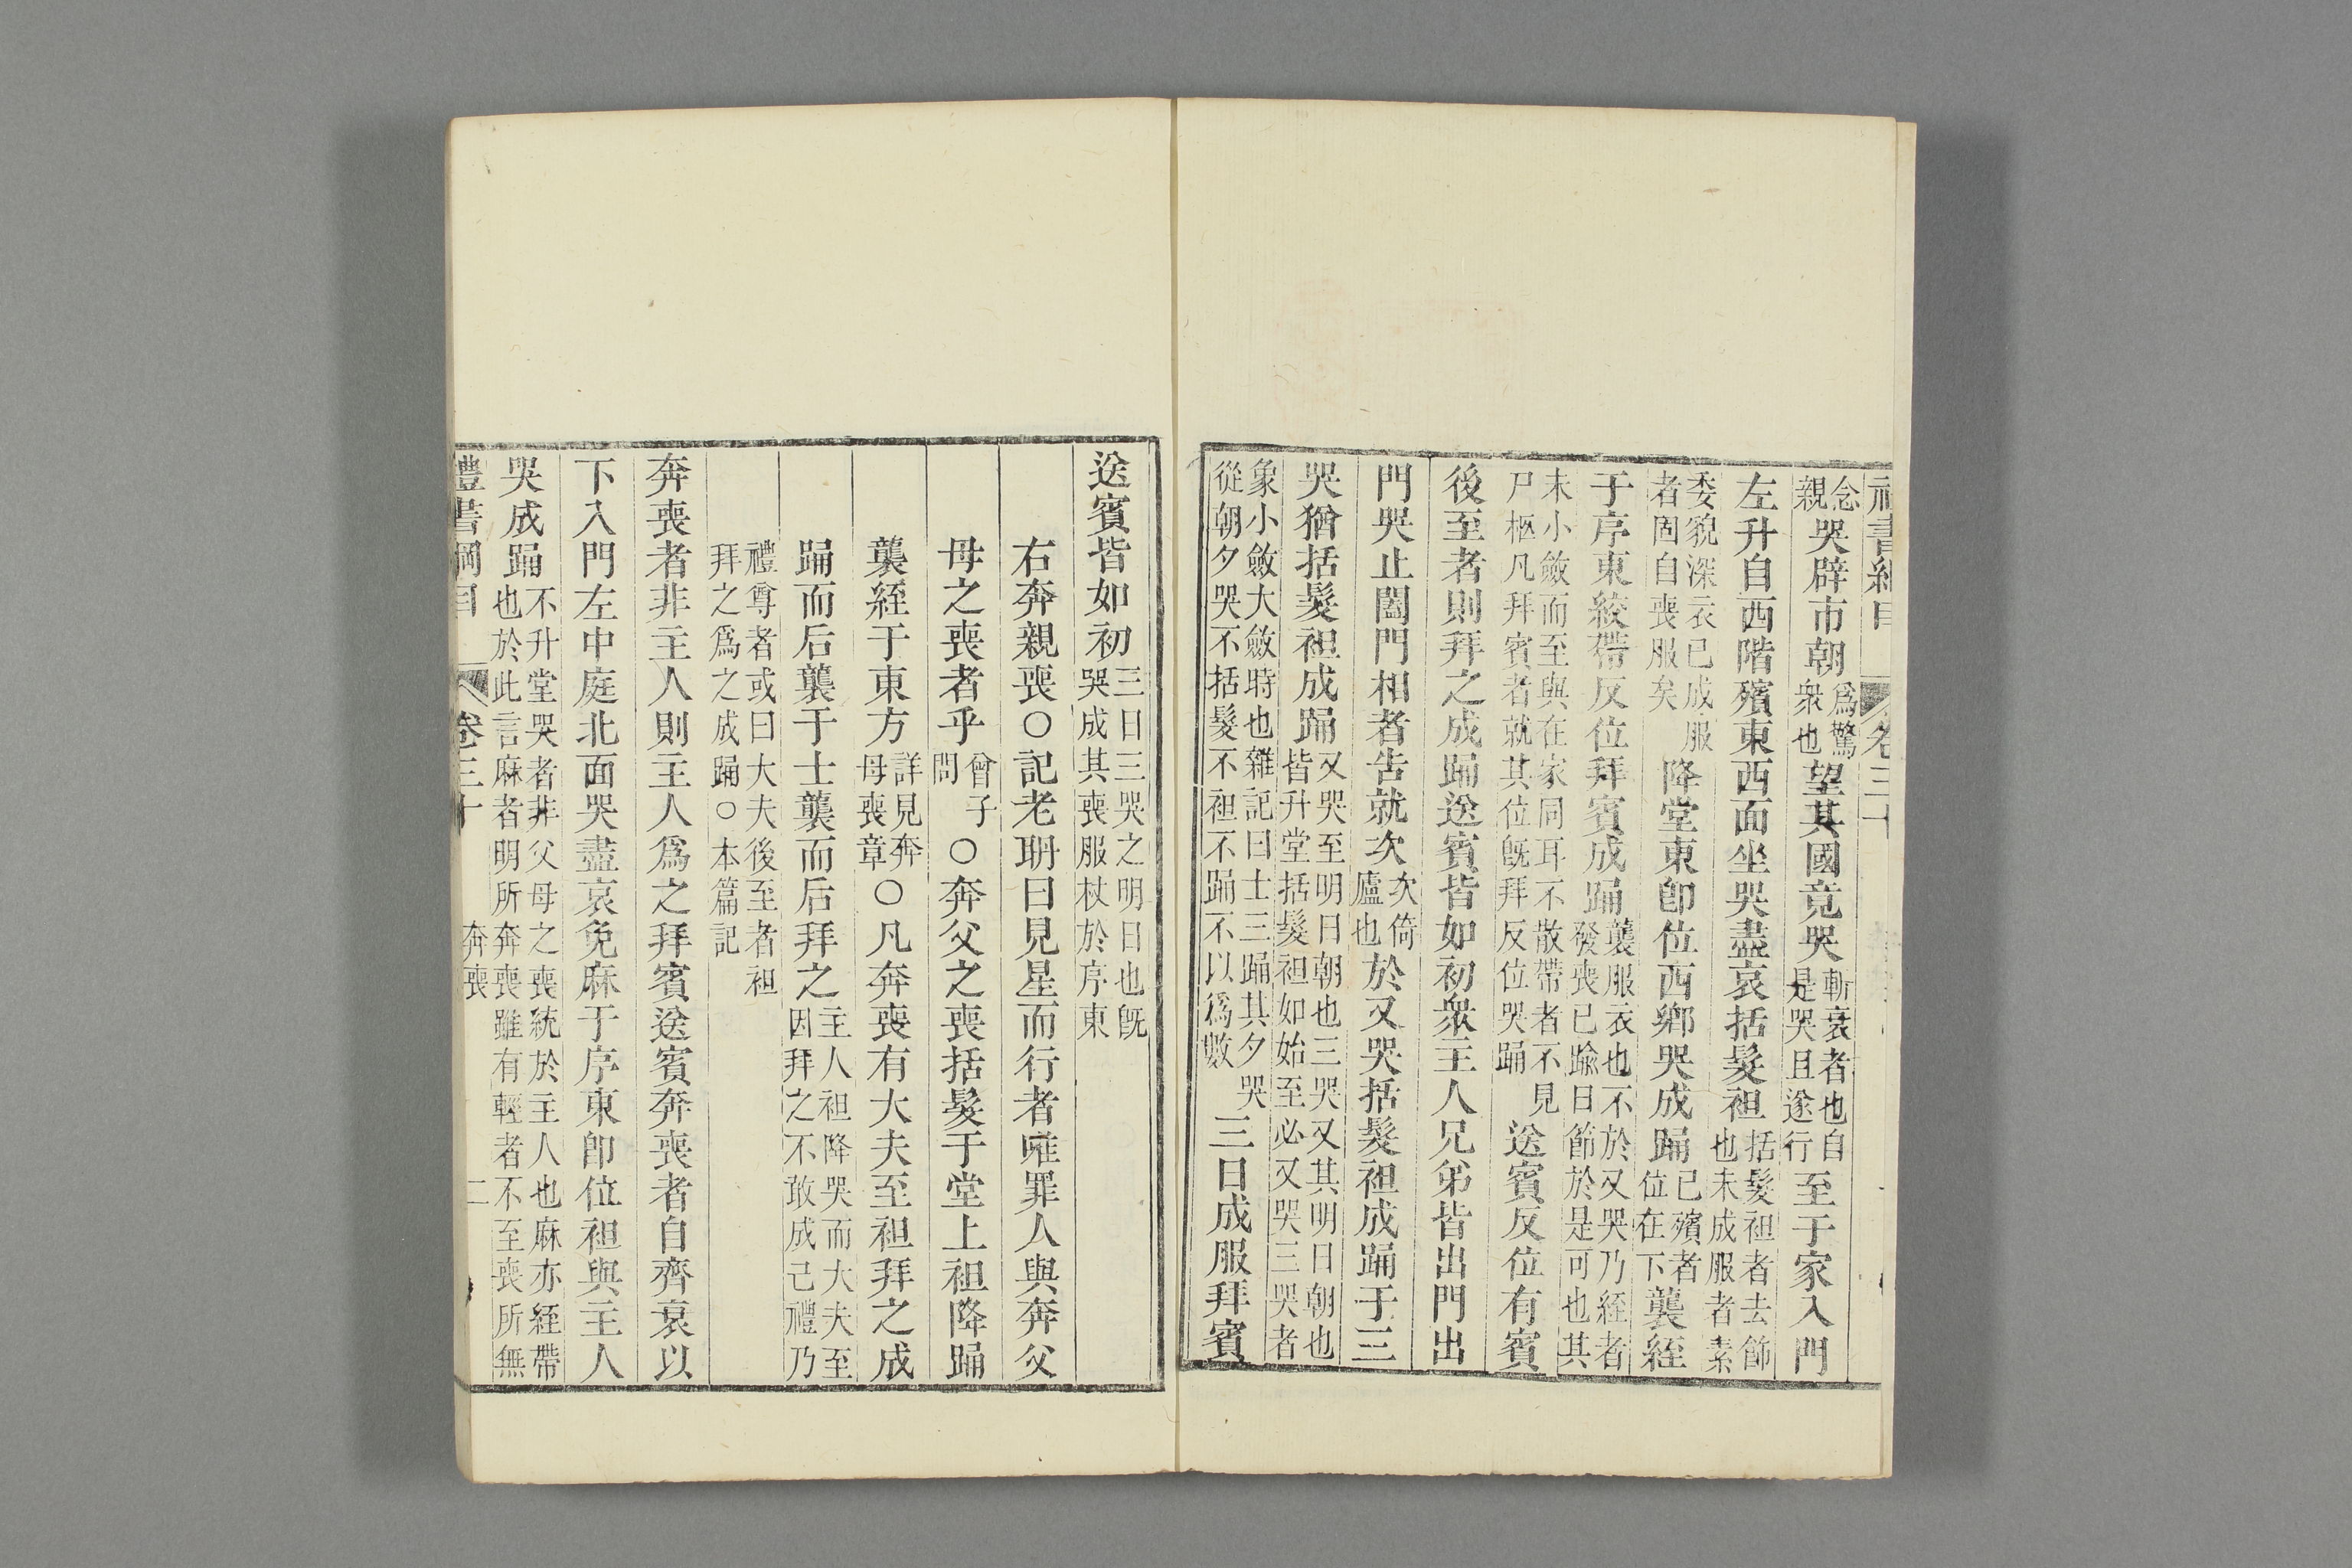 念親哭辟市朝爲驚衆也望其國竟哭斬衰者也自是哭且遂行至于家入門
左升自西階殯東西面坐哭盡哀括髮袒括髮袒者去飾也未成服者素
委貌深衣已成服者固自喪服矣降堂東卽位西鄉哭成踊已殯者位在下襲絰
于序東絞帶反位拜賓成踊襲服衣也不於又哭乃絰者發喪已踰日節於是可也其
未小斂而至與在家同耳不散帶者不見尸柩凡拜賓者就其位旣拜反位哭踊送賓反位有賓
後至者則拜之成踊送賓皆如初衆主人兄弟皆出門出
門哭止闔門相者告就次次倚廬也於又哭括髮袒成踊于三
哭猶括髮袒成踊又哭至明日朝也三哭又其明日朝也皆升堂括髮袒如始至必又哭三哭者
象小斂大斂時也雜記曰士三踊其夕哭從朝夕哭不括髮不袒不踊不以爲數三日成服拜賓
送賓皆如初三日三哭之明日也旣哭成其喪服杖於序東
右奔親喪○記老聃曰見星而行者唯罪人與奔父
母之喪者乎曾子問○奔父之喪括髮于堂上袒降踊
襲絰于東方詳見奔母喪章○凡奔喪有大夫至袒拜之成
踊而后襲于士襲而后拜之主人袒降哭而大夫至因拜之不敢成己禮乃
禮尊者或曰大夫後至者袒拜之爲之成踊○本篇記
奔喪者非主人則主人爲之拜賓送賓奔喪者自齊衰以
下入門左中庭北面哭盡哀免麻于序東卽位袒與主人
哭成踊不升堂哭者非父母之喪統於主人也麻亦絰帶也於此言麻者明所奔喪雖有輕者不至喪所無
禮書綱目 卷三十 奔喪 二